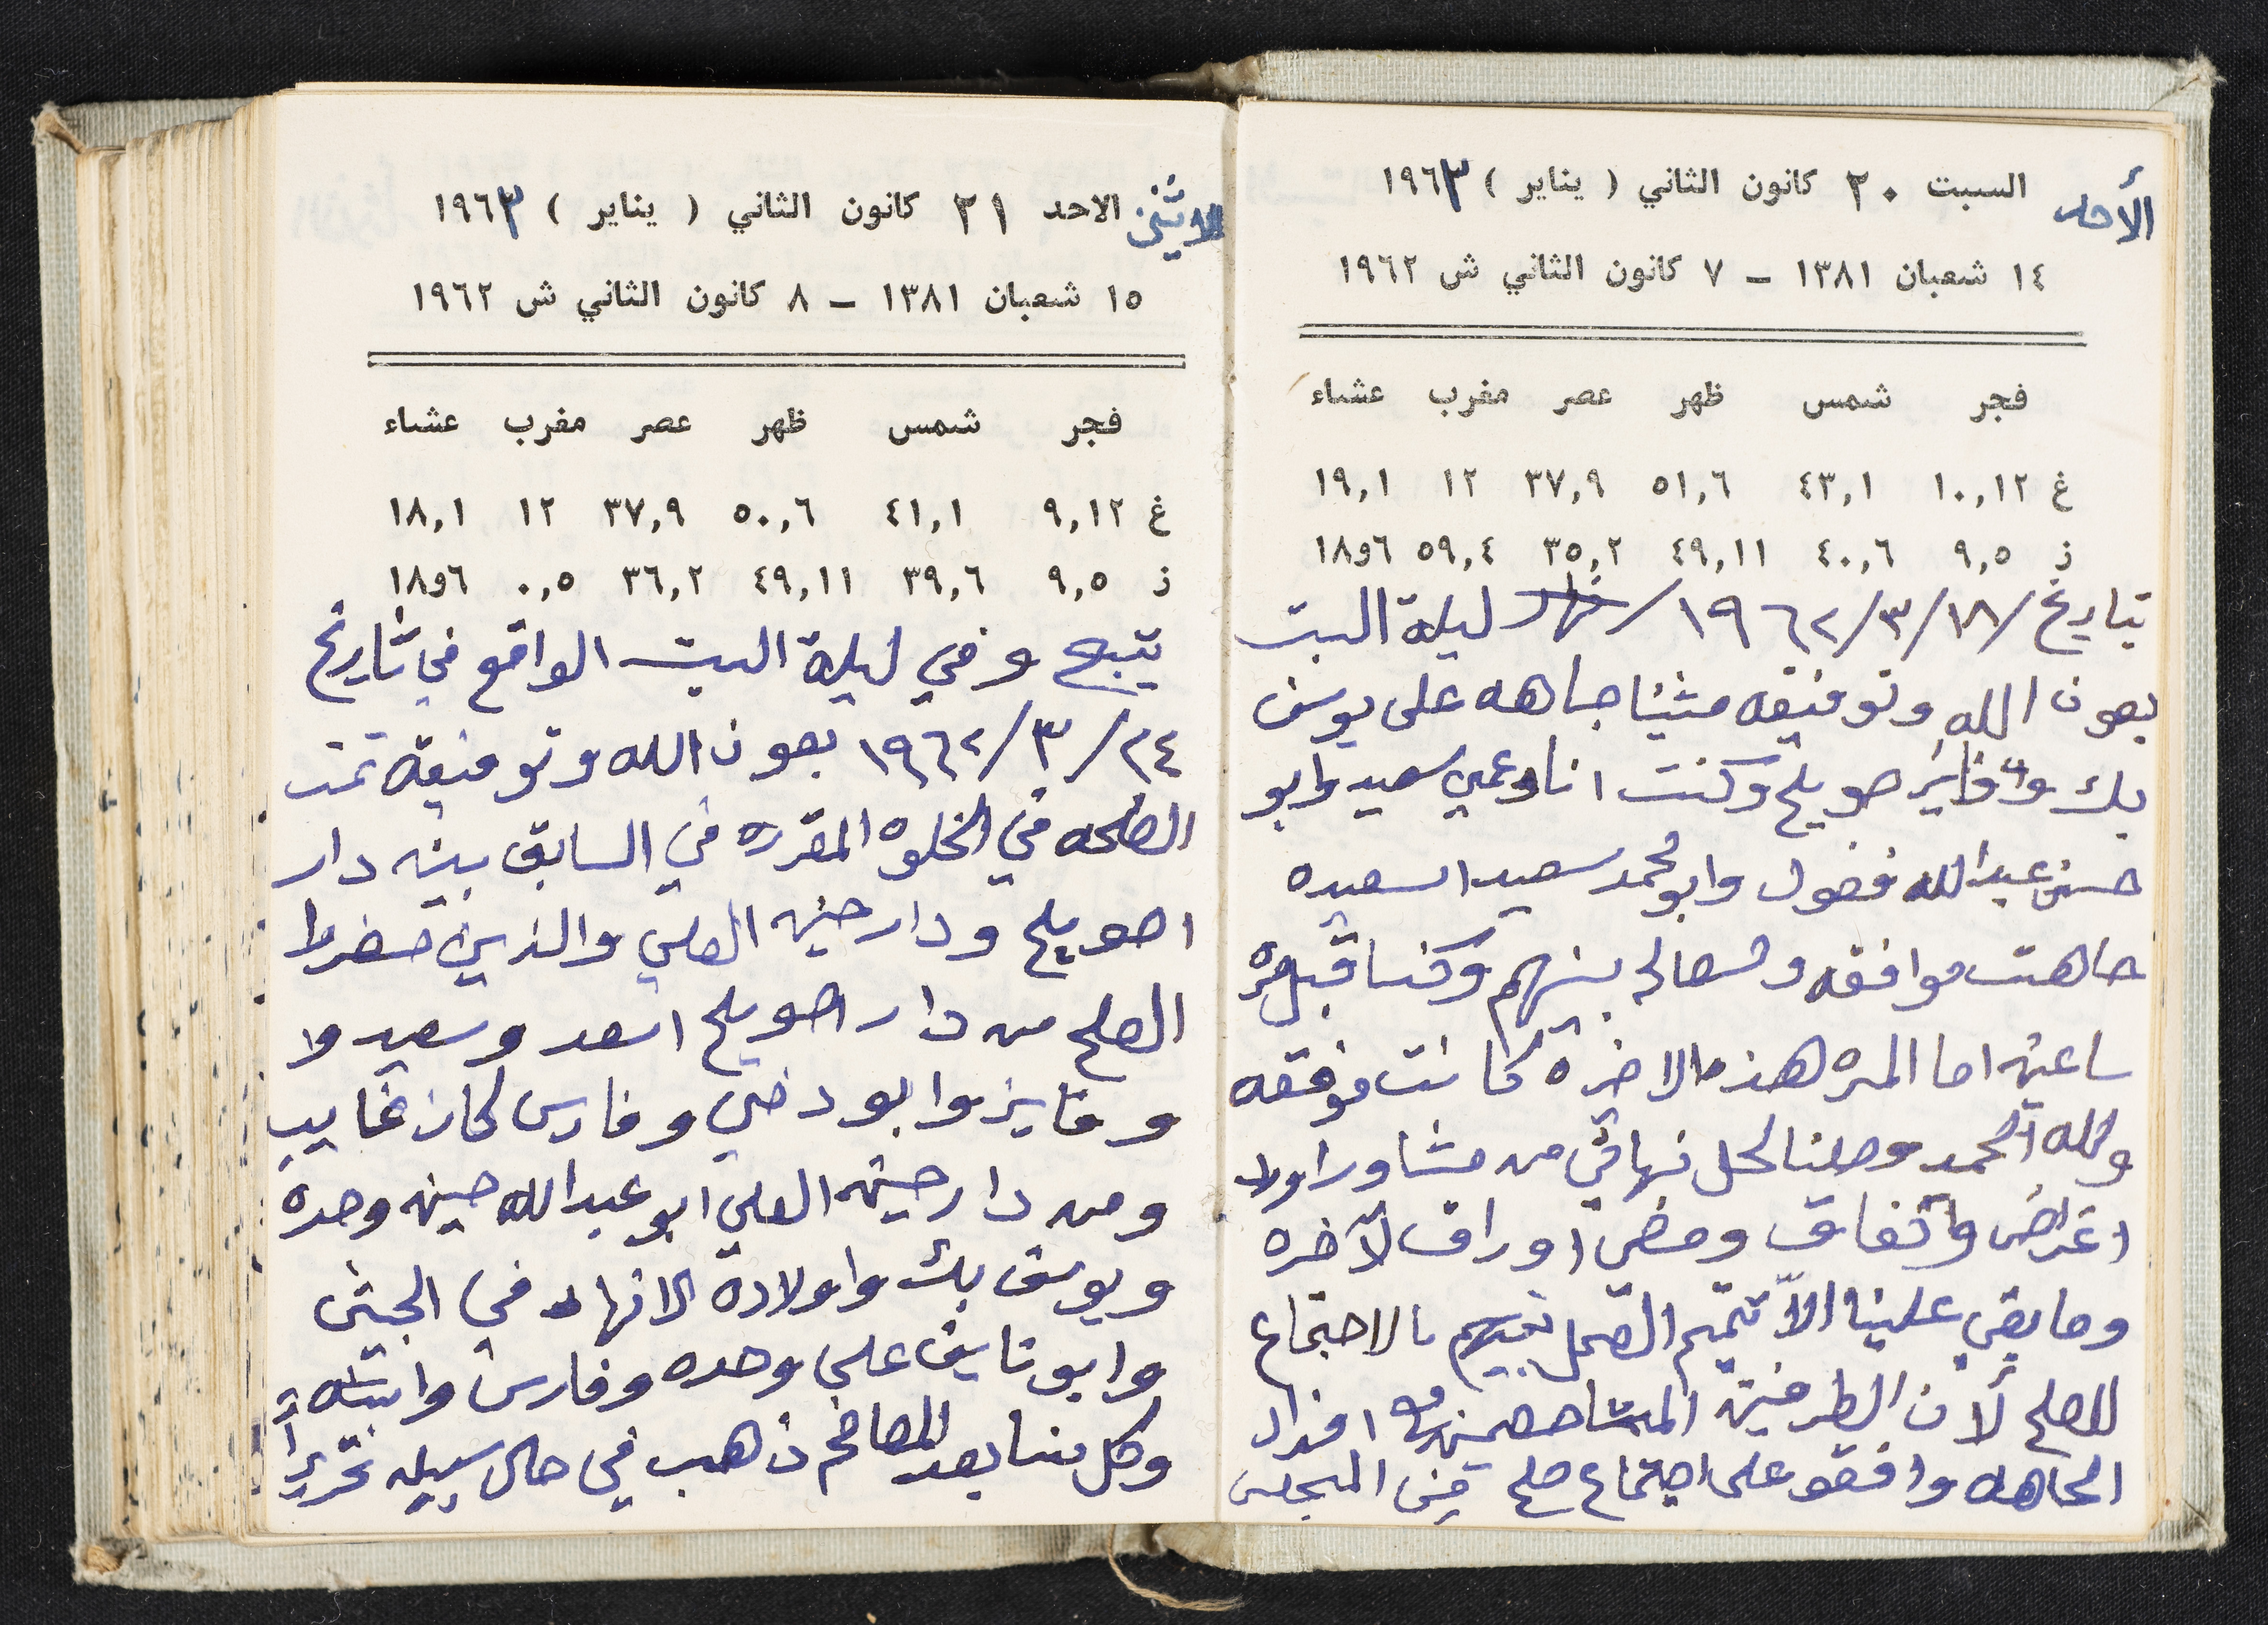 الأحد
السبت ٢٠ كانون الثاني ( يناير ) ١٩٦٣
١٤ شعبان ١٣٨١ – ٧ كانون الثاني ش ١٩٦٢
فجر شمس ظهر عصر مغرب عشاء
غ ١٠,١٢ ٤٣,١ ٥١,٦ ٣٧,٩ ١٢ ١٩,١
ز ٩,٥ ٤٠,٦ ٤٩,١١ ٣٥,٢ ٥٩,٤ ٦و١٨
بتاريخ /١٨/٣/١٩٦٢/ ليلة السبت
بعون الله وتوفيقه مشينا جاهه على يوسف
بك وفايز صويلح وكنت انا وعمي سعيد وابو
حسين عبدالله فضول وابو محمد سعيد اسعيده
جاهت موافقه بينهم وكنا قبل مره
ساعين اما المره هذه الاخره كانت موفقه
ولله الحمد وصلنا لحل نهائي من مشاور اولا
اغراض واتفاق ومضي اوراق لآخره
وما بقي علينا الاّ تتميم بالاجتماع
للصلح لأن الطرفين المتخاصمين مع افراد
الجاهه وافقو على اجتماع صلح في المجلس
الاثنين
الاحد ٢١ كانون الثاني ( يناير ) ١٩٦٣
١٥ شعبان ١٣٨١ – ٨ كانون الثاني ش ١٩٦٢
فجر شمس ظهر عصر مغرب عشاء
غ ٩,١٢ ٤١,١ ٥٠,٦ ٣٧,٩ ١٢ ١٨,١
ز ٩,٥ ٣٩,٦ ٤٩,١١ ٣٦,٢ ٠,٥ ٦و١٨
يتبع وفي ليلة السبت الواقع في تأريخ
٢٤/٣/١٩٦٢ بعون الله وتوفيقه تمت
الصلحه في الخلوه المقرره في السابق بين دار
اصويلح ودار حسين العلي والذين حضرو
الصلح من دار اصويلح اسعد وسعيد وا
وفايز وابو رضي وفارس كان غايب
ومن دار حسين العلي ابو عبدالله حسين وحده
ويوسف بك واولاده في الجيش
وابو نايف علي وحده وفارس وابنه
وكل منا بعد المصافح ذهب في حال سبيله تحريراً